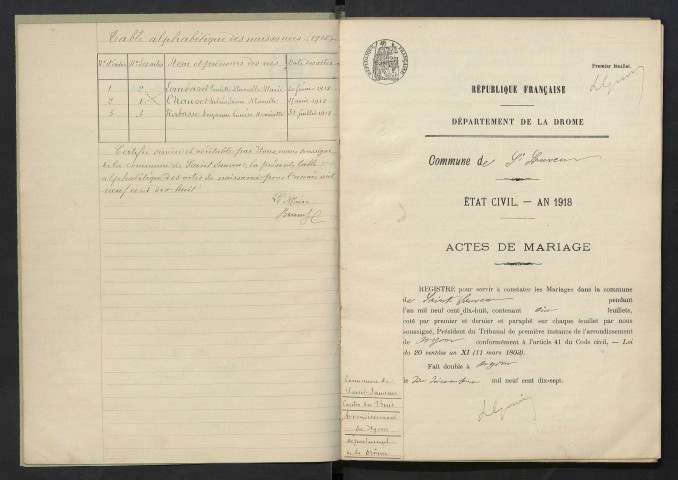 Table alphabétique des naissances (1918)
Nos d'ordre Nos des actes Nom et prénoms des nés Date des actes
1 2 Lombard Marcelle Marie février 1918
2 1 Chauvet Marcelle 1918
3 3 Rabasse Suzanne Louise Henriette 31 juillet 1918
Certifié sincère et véritable par Nous, maire soussigné
de la commune de Saint Sauveur, la présente table
alphabétique des actes de naissance pour l'année mil
neuf cent dix huit
Le Maire
Premier feuillet.
RÉPUBLIQUE FRANÇAISE
RÉPUBLIQUE FRANÇAISE
DÉPARTEMENT DE LA DROME
Commune de St Sauveur
ÉTAT CIVIL. — AN 1918
ACTES DE MARIAGE
REGISTRE pour servir à constater les Mariages dans la commune
de Saint Sauveur pendant
l'an mil neuf cent dix-huit, contenant dix feuillets,
coté par premier et dernier et paraphé sur chaque feuillet par nous
soussigné, Président du Tribunal de première instance de l'arrondissement
de Nyons conformément à l'article 41 du Code civil. — Loi
du 20 ventôse an XI (11 mars 1803).
Fait double à Nyons
le dix Décembre mil neuf cent dix-sept.
Commune de
Saint-Sauveur
Canton du Buis
Arrondissement
de Nyons
département
de la Drôme